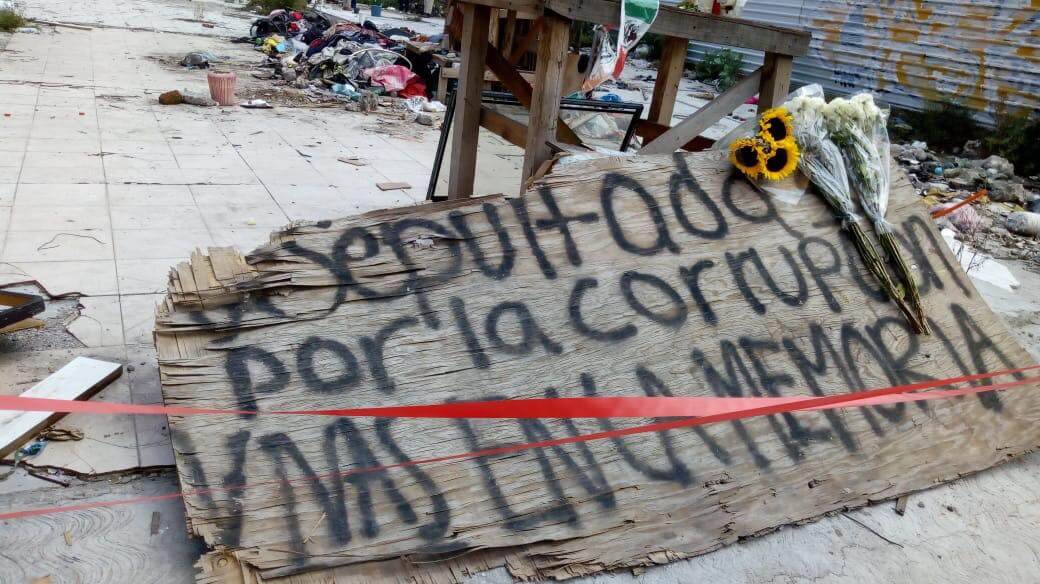 Sepultadas
por la corrupcion
VIVAS EN LA MEMORIA